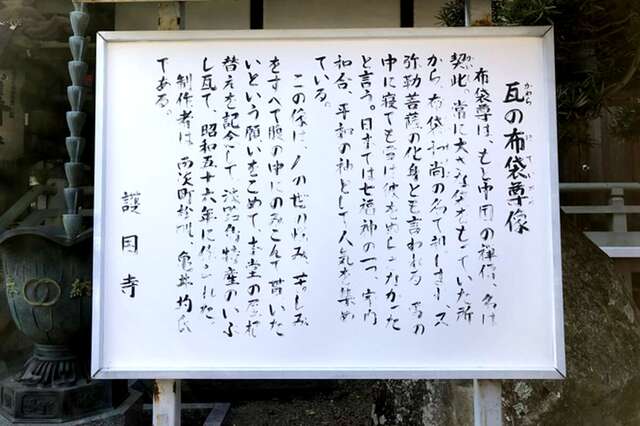 瓦の布袋尊像
布袋尊は、もと中国の禅僧、名は
契此。常に大きな袋をもっていた所
から、布袋和尚の名で親しまれ、又
弥勒菩薩の化身とも言われる。雪の
中に寝ても雪は彼をぬらさなかった
と言う。日本では七福神の一つ、家内
和合、平和の神として人気を集め
ている。
この像は、人の世の悩み、苦しみ
をすべて腹の中にのみこんで頂いた
いという願いをこめて、本堂の屋根
替えを記念して、淡路島特産のいぶ
し瓦で、昭和五十六年に作られた。
制作者は、西淡町松帆、亀井均氏
である。
護国寺